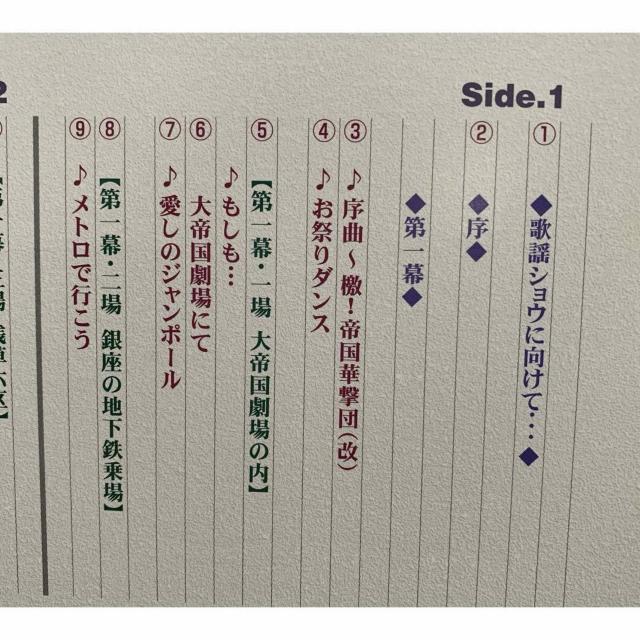 Side.1
① ◆歌謡ショウに向けて…◆
② ◆序◆
◆第一幕◆
③ ♪序曲～檄!帝国華撃団(改)
④ ♪お祭りダンス
⑤ 【第一幕・一場 大帝国劇場の内】
♪もしも…
⑥ 大帝国劇場にて
⑦ ♪愛しのジャンポール
⑧ 【第一幕・二場 銀座の地下鉄乗場】
⑨ ♪メトロで行こう
2